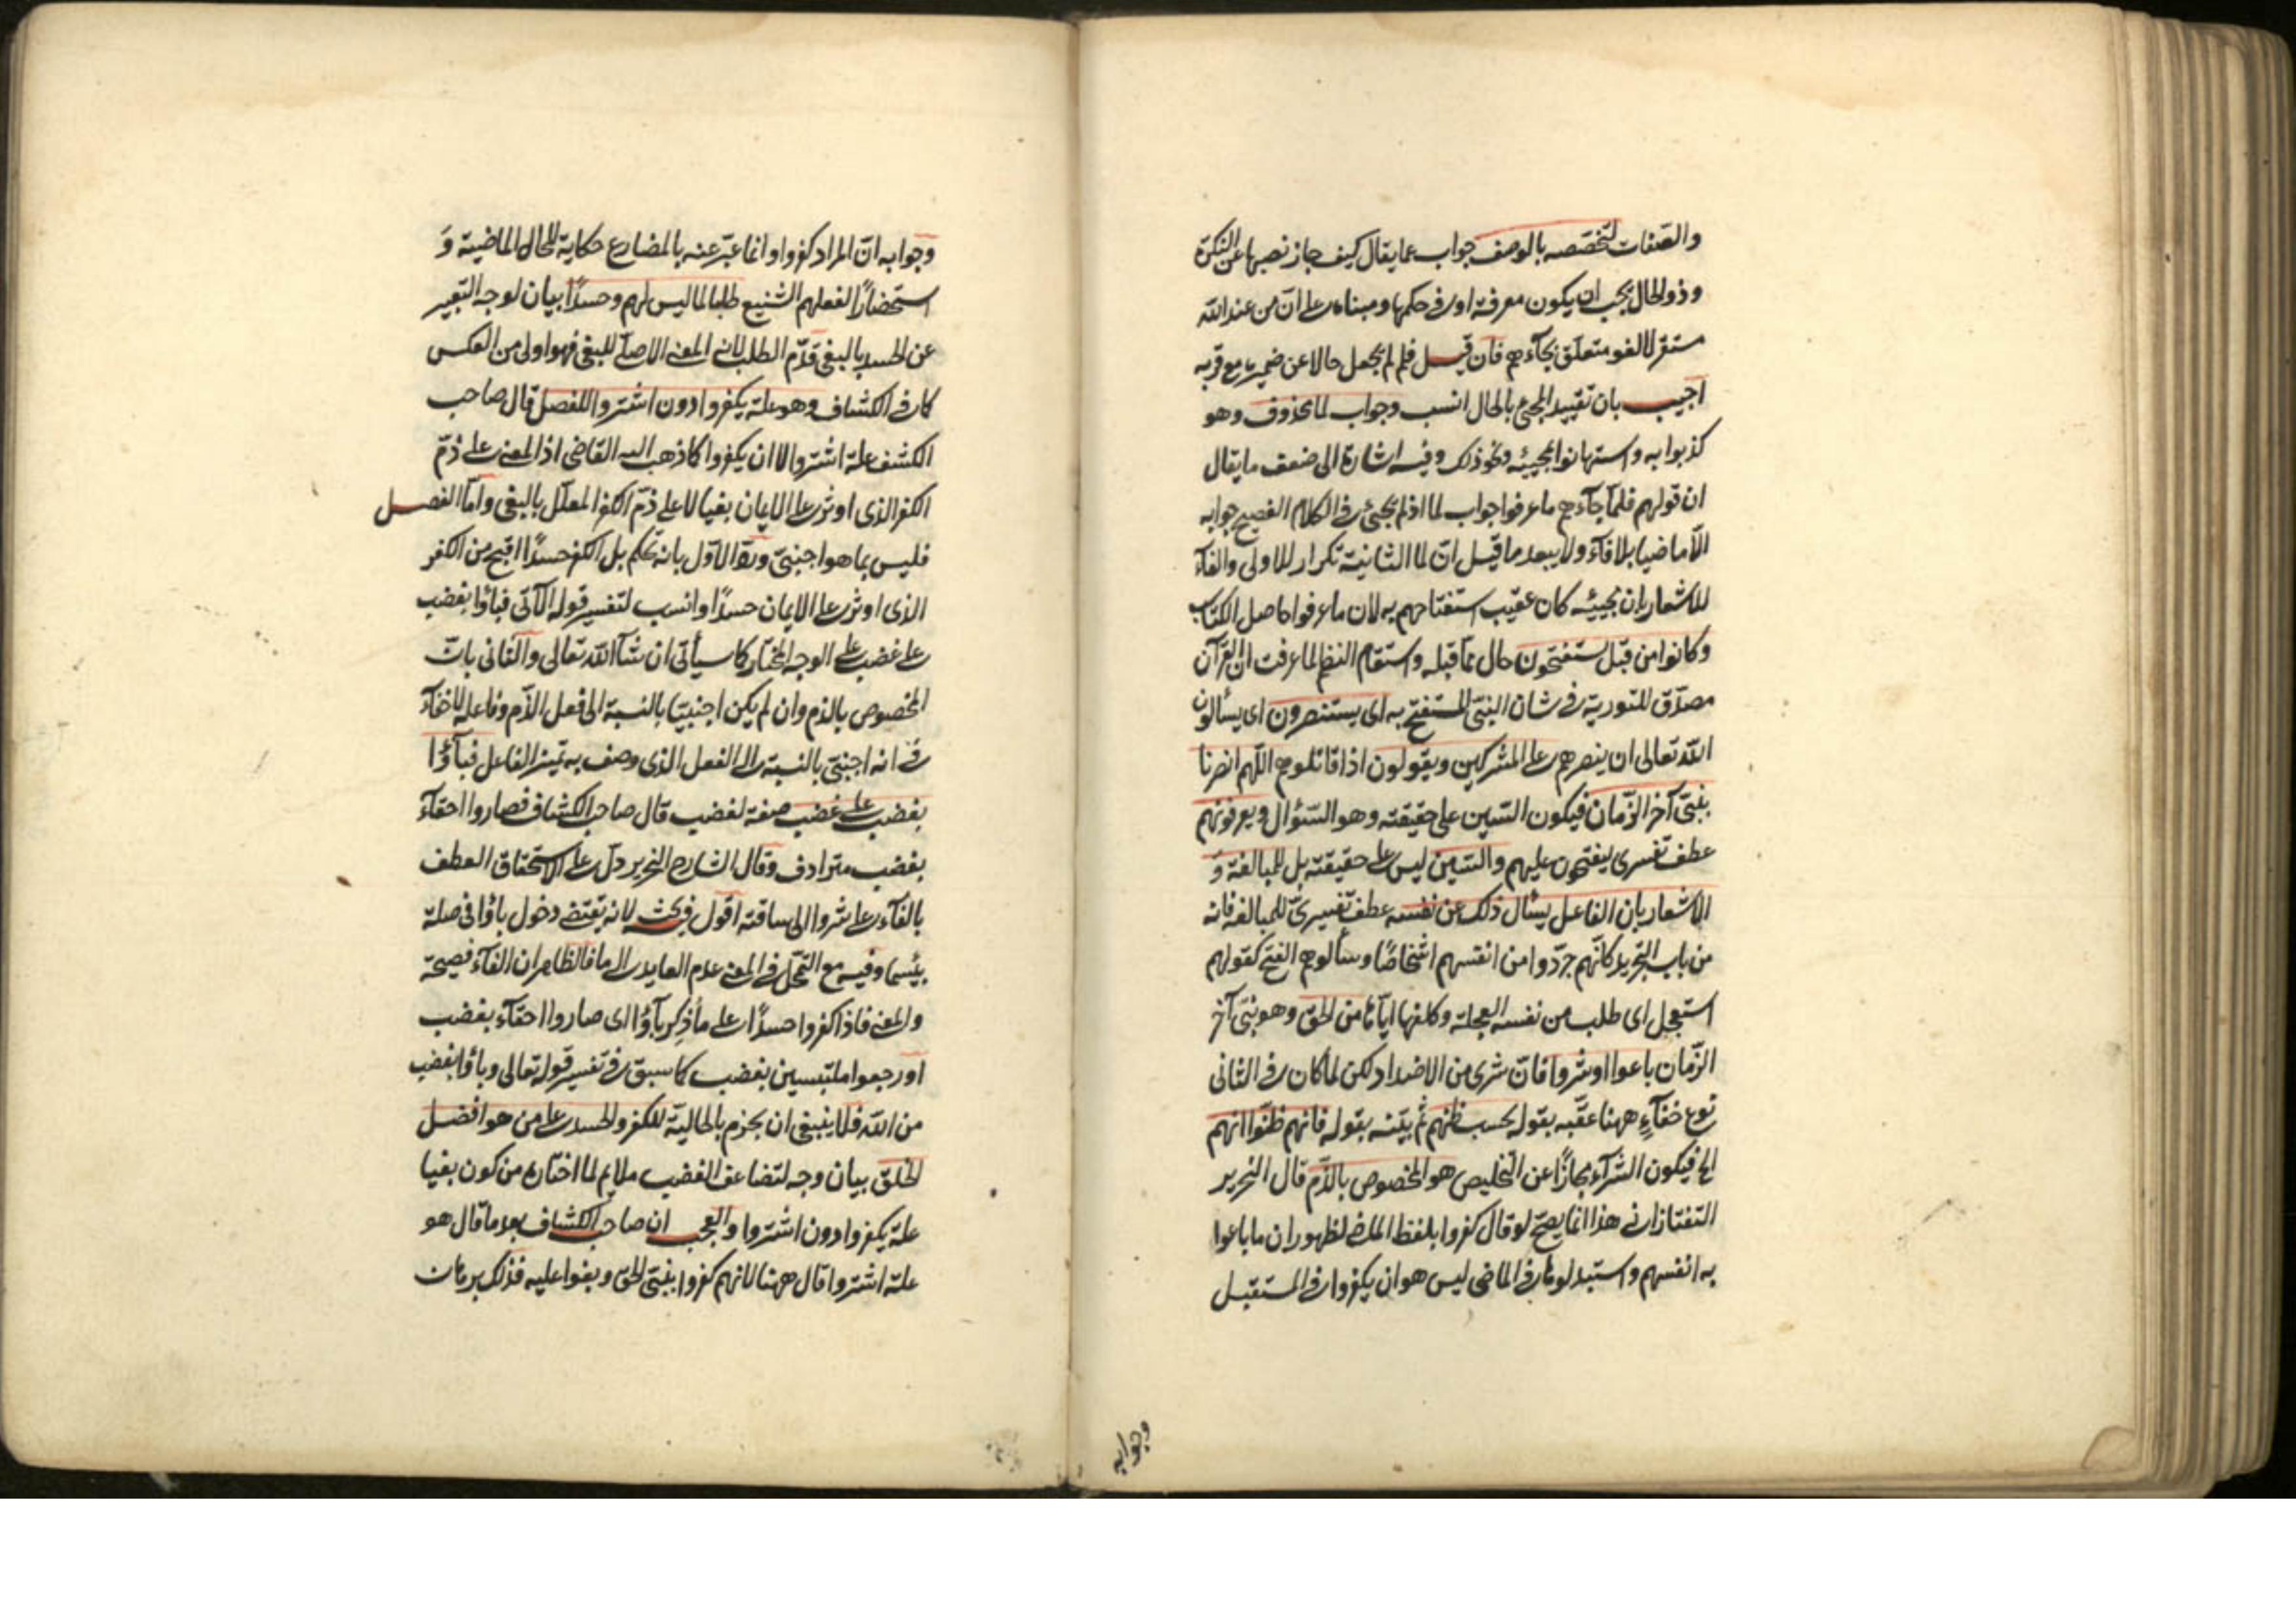 والصفات لتخصصه بالوصف جواب عما يقال كيف جاز نصبها عن النكرة
وذو الحال يجب ان يكون معرفة او في حكمها ومبناه على ان من عند الله
مستقر لا لغو متعلق بجاءهم فان قيل فلم لم يجعل حالا عن ضميره مع قربه
اجيب بان تقييد المجئ بالحال انسب وجواب لما محذوف وهو
كذبوا به واستهانوا بمجيئه ونحو ذلك وفيه اشارة الى ضعف ما يقال
ان قولهم فلما جآءهم ما عرفوا جواب لما اذ لم يجئ في الكلام الفصيح جوابه
الا ماضيا بلا فآء ولا يبعد ما قيل ان لما الثانية تكرار للاولى والفآء
للاشعار بان مجيئه كان عقيب استفتاحهم به لان ما عرفوا حاصل الكتاب
وكانوا من قبل يستفتحون حال مما قبله واستقام النظم لما عرفت ان القرآن
مصدق للتورية في شان النبى المستفتح به اى يستنصرون اى يسألون
الله تعالى ان ينصرهم على المشركين ويقولون اذا قاتلوهم اللهم انصرنا
بنبى آخر الزمان فيكون السين على حقيقته وهو السؤال ويعرفونهم
عطف تفسرى ليفتحون عليهم والسين ليس على حقيقته بل للمبالغة و
الاشعار بان الفاعل يسأل ذلك عن نفسه عطف تفسيرى للمبالغة فانه
من باب التجريد كانهم جردوا من انفسهم اشخاصا وسألوهم الفتح كقولهم
استعجل اى طلب من نفسه العجلة وكلفها اياها من الحق وهو نبى آخر
الزمان باعوا او شروا فان شرى من الاضداد لكن لما كان في الثانى
نوع خفآء ههنا عقبه بقوله بحسب ظنهم ثم بينه بقوله فانهم ظنوا انهم
الخ فيكون الشرآء مجازا عن التخليص هو المخصوص بالذم قال النحرير
التفتازانى هذا انما يصح لو قال كفروا بلفظ الماضى لظهور ان ما باعوا
به انفسهم واستبدلوها في الماضى ليس هو ان يكفروا في المستقبل
وجوابه
وجوابه ان المراد كفروا وانما عبر عنه بالمضارع حكاية للحال الماضية و
استحضارا لفعلهم الشنيع طلبا لما ليس لهم وحسدا بيان لوجه التعبير
عن الحسد بالبغى قدم الطلب لانه المعنى الاصلى للبغى فهو اولى من العكس
كما في الكشاف وهو علة يكفروا دون اشتروا للفصل قال صاحب
الكشف علة اشتروا لا ان يكفروا كما ذهب اليه القاضى اذ المعنى على ذم
الكفر الذى اوثر على الايمان بغيا لا على ذم الكفر المعلل بالبغى واما الفصل
فليس بما هو اجنبى ورد الاول بانه تحكم بل الكفر حسدا اقبح من الكفر
الذى اوثر على الايمان حسدا وانسب لتفسير قوله الآتى فباؤا بغضب
على غضب على الوجه المختار كما سيأتى ان شآ الله تعالى والثانى بان
المخصوص بالذم وان لم يكن اجنبيا بالنسبة الى فعل الذم وفاعله لاخفآء
في انه اجنبى بالنسبة الى الفعل الذى وصف به تميز الفاعل فبآؤا
بغضب على غضب صفة لغضب قال صاحب الكشاف فصاروا احقآء
بغضب مترادف وقال الشارح النحرير دل على الاستحقاق العطف
بالفآء على شروا الى ساقته اقول فيه بحث لانه يقتضى دخول باؤا في صلة
بئسما وفيه مع التمحل في المعنى عدم العايد الى ما فالظاهر ان الفآء فصيحة
والمعنى فاذا كفروا حسدا على ما ذكر بآؤا اى صاروا احقآء بغضب
او رجعوا ملتبسين بغضب كما سبق في تفسير قوله تعالى وباؤا بغضب
من الله فلا ينبغى ان يجزم بالحالية للكفر والحسد على من هو افضل
الخلق بيان وجه لتضاعف الغضب ملايم لما اختاره من كون بغيا
علة يكفروا دون اشتروا والعجب ان صاحب الكشاف بعد ما قال هو
علة اشتروا قال ههنا لانهم كفروا بنبى الحق وبغوا عليه فذلك برهان